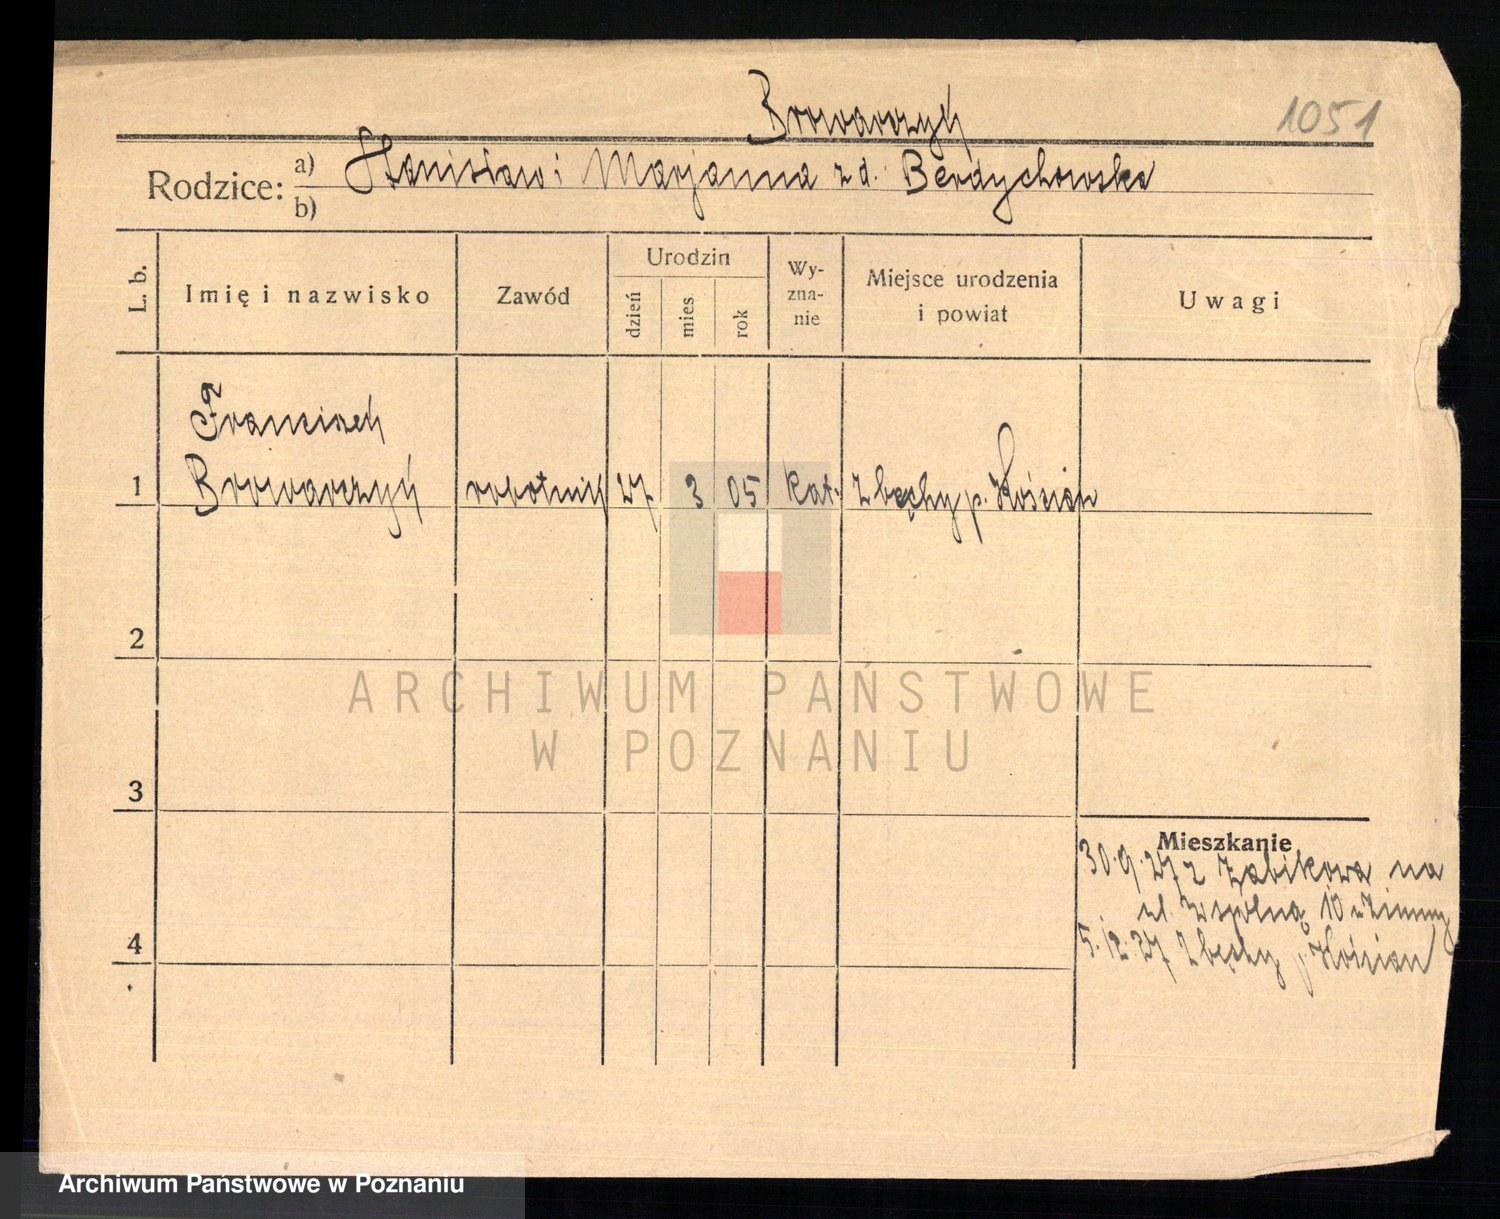 Browarczyk
1051
Rodzice:
a) Stanisław i Marjanna z d. Berdychowska
b)
L. b.
Imię i nazwisko
Zawód
Urodzin
dzień
mies
rok
Wy-
zna-
nie
Miejsce urodzenia
i powiat
Uwagi
Franciszek
1 Browarczyk robotnik 27 3 05 kat. Zbęchy p. Kościan
2
ARCHIWUM PAŃSTWOWE
W POZNANIU
3
Mieszkanie
30.9.27 z Żabikowa na
ul. Wspólną 10 u Zimny
4
5.12.27 Zbęchy p. Kościan
Archiwum Państwowe w Poznaniu